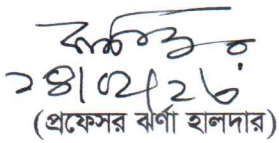 ২৪/০২/২৬
(প্রফেসর ঝর্ণা হালদার)